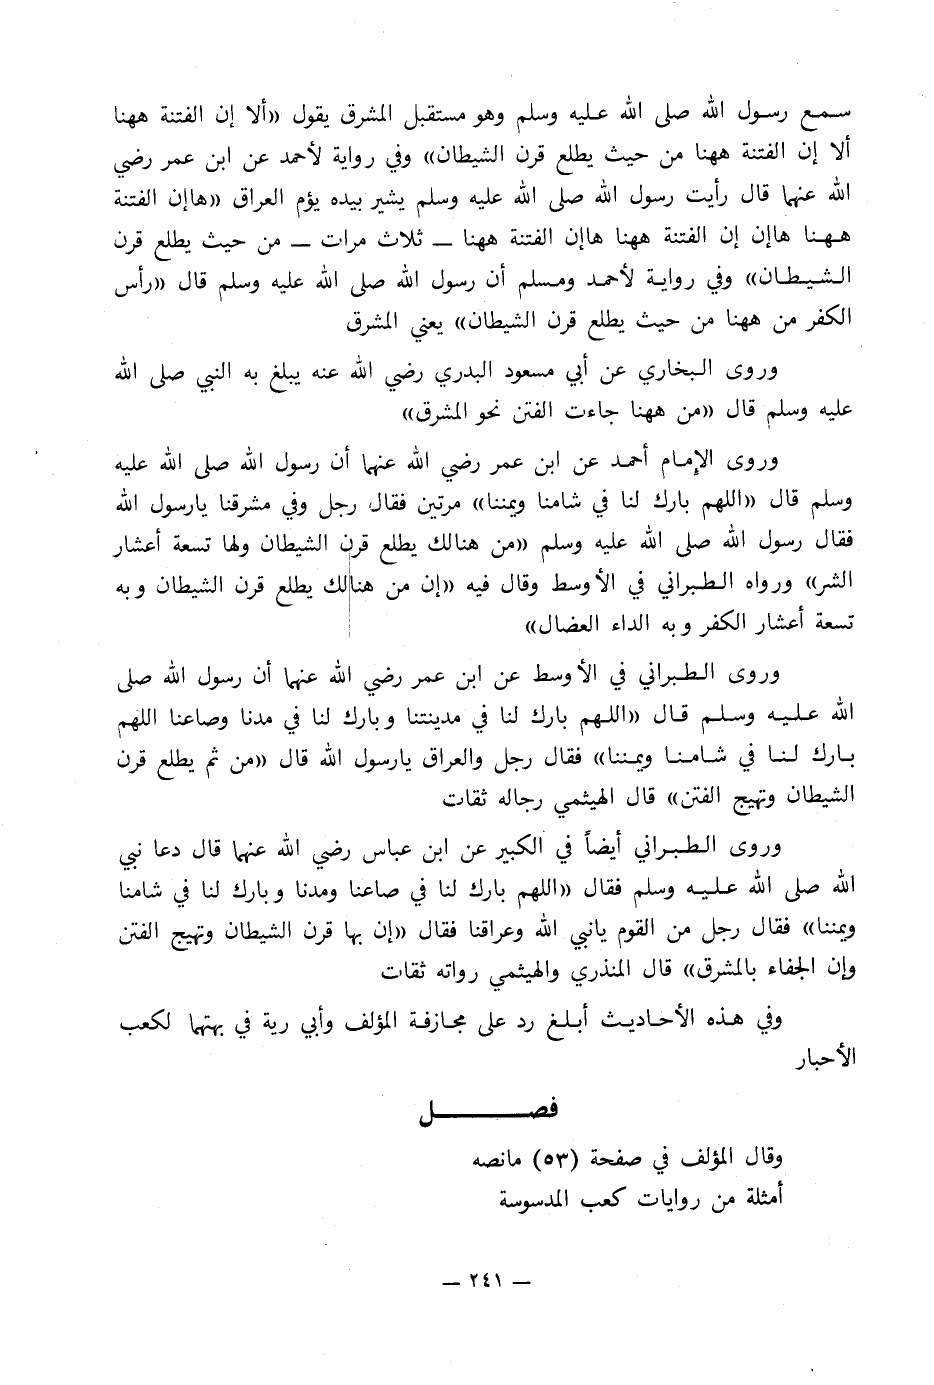 سمع رسول الله صلى الله عليه وسلم وهو مستقبل المشرق يقول «ألا إن الفتنة ههنا
ألا إن الفتنة ههنا من حيث يطلع قرن الشيطان» وفي رواية لأحمد عن ابن عمر رضي
الله عنهما قال رأيت رسول الله صلى الله عليه وسلم يشير بيده يؤم العراق «هاإن الفتنة
ههنا هاإن إن الفتنة ههنا هاإن الفتنة ههنا ــ ثلاث مرات ــ من حيث يطلع قرن
الشيطان» وفي رواية لأحمد ومسلم أن رسول الله صلى الله عليه وسلم قال «رأس
الكفر من ههنا من حيث يطلع قرن الشيطان» يعني المشرق
وروى البخاري عن أبي مسعود البدري رضي الله عنه يبلغ به النبي صلى الله
عليه وسلم قال «من ههنا جاءت الفتن نحو المشرق»
وروى الإمام أحمد عن ابن عمر رضي الله عنهما أن رسول الله صلى الله عليه
وسلم قال «اللهم بارك لنا في شامنا ويمننا» مرتين فقال رجل وفي مشرقنا يارسول الله
فقال رسول الله صلى الله عليه وسلم «من هنالك يطلع قرن الشيطان ولها تسعة أعشار
الشر» ورواه الطبراني في الأوسط وقال فيه «إن من هنالك يطلع قرن الشيطان وبه
تسعة أعشار الكفر وبه الداء العضال»
وروى الطبراني في الأوسط عن ابن عمر رضي الله عنهما أن رسول الله صلى
الله عليه وسلم قال «اللهم بارك لنا في مدينتنا وبارك لنا في مدنا وصاعنا اللهم
بارك لنا في شامنا ويمننا» فقال رجل والعراق يارسول الله قال «من ثم يطلع قرن
الشيطان وتهيج الفتن» قال الهيثمي رجاله ثقات
وروى الطبراني أيضاً في الكبير عن ابن عباس رضي الله عنهما قال دعا نبي
الله صلى الله عليه وسلم فقال «اللهم بارك لنا في صاعنا ومدنا وبارك لنا في شامنا
ويمننا» فقال رجل من القوم يانبي الله وعراقنا فقال «إن بها قرن الشيطان وتهيج الفتن
وإن الجفاء بالمشرق» قال المنذري والهيثمي رواته ثقات
وفي هذه الأحاديث أبلغ رد على مجازفة المؤلف وأبي رية في بهتهما لكعب
الأحبار
فصل
وقال المؤلف في صفحة (٥٣) مانصه
أمثلة من روايات كعب المدسوسة
— ٢٤١ —